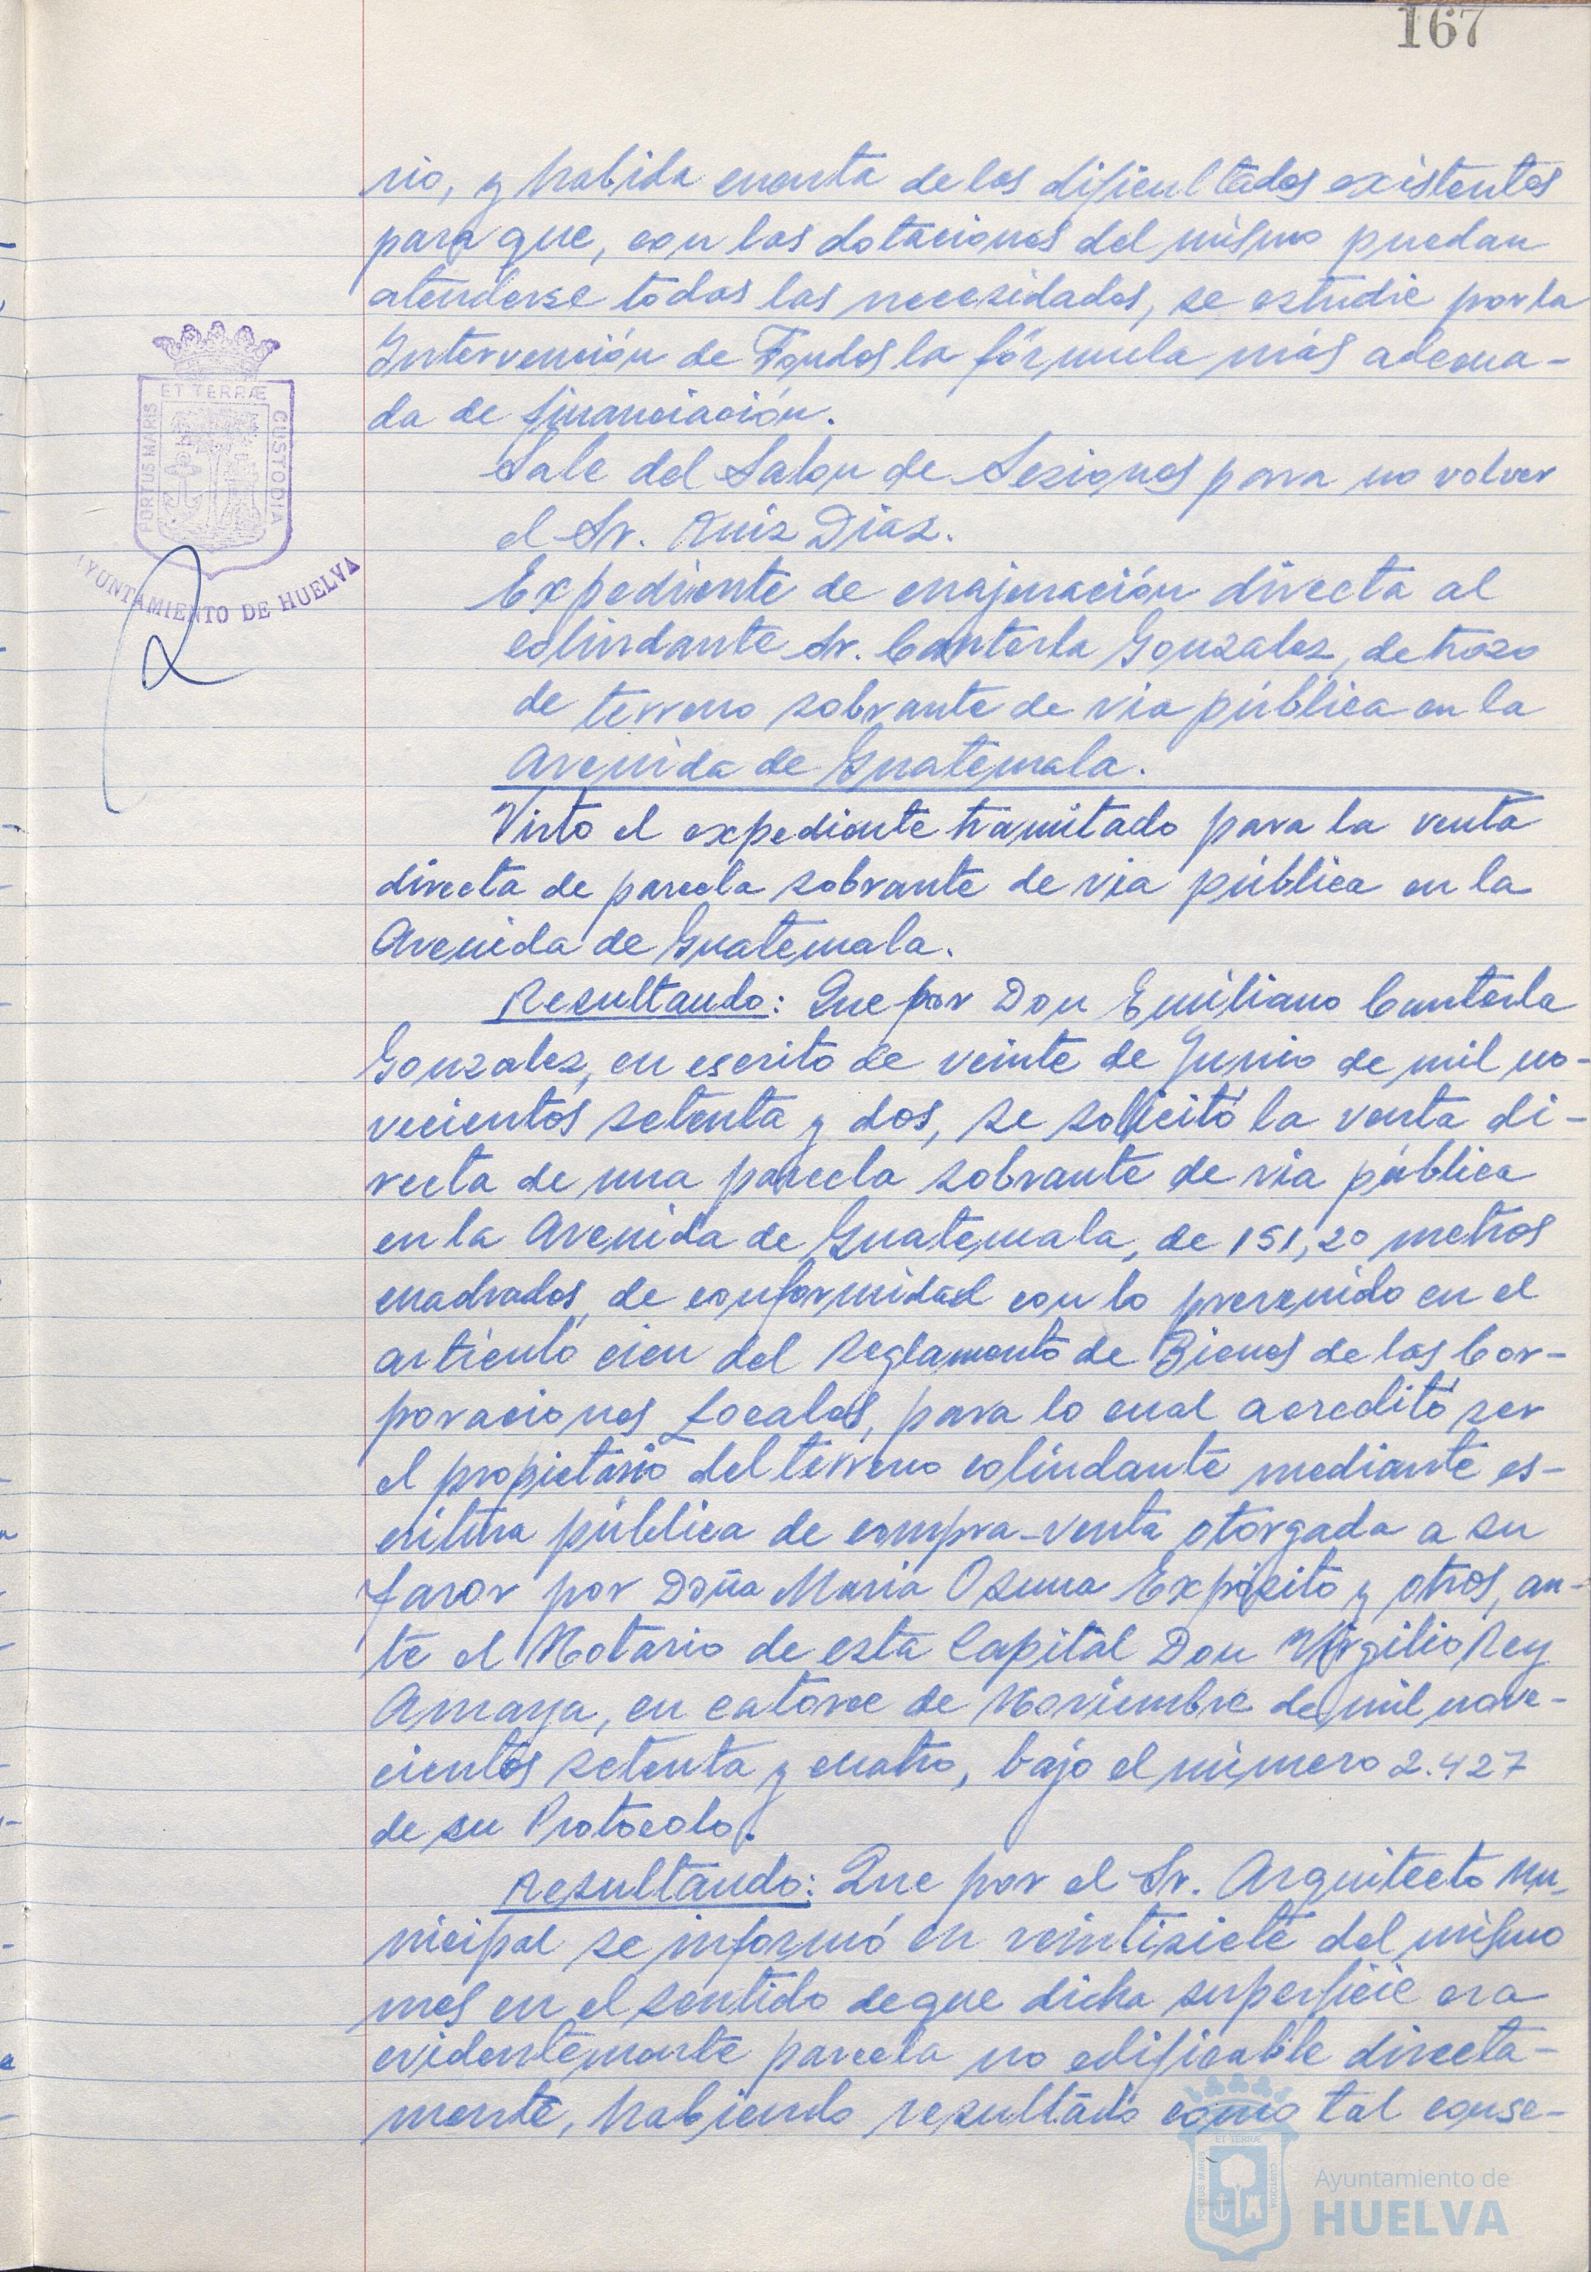 167
rio, y habida cuenta de las dificultades existentes
para que, con las dotaciones del mismo puedan
atenderse todas las necesidades, se estudie por la
Intervención de Fondos la fórmula más adecua-
da de financiación.
Sale del Salon de Sesiones para no volver
el Sr. Ruiz Diaz.
Expediente de enajenación directa al
colindante Sr. Canterla Gonzalez, de trozo
de terreno sobrante de via pública en la
Avenida de Guatemala.
Visto el expediente tramitado para la venta
directa de parcela sobrante de via pública en la
Avenida de Guatemala.
Resultando: Que por Don Emiliano Canterla
Gonzalez, en escrito de veinte de Junio de mil no-
vecientos setenta y dos, se solicitó la venta di-
recta de una parcela sobrante de via pública
en la Avenida de Guatemala, de 151,20 metros
cuadrados, de conformidad con lo prevenido en el
artículo cien del Reglamento de Bienes de las Cor-
poraciones Locales, para lo cual acreditó ser
el propietario del terreno colindante mediante es-
critura pública de compra-venta otorgada a su
favor por Doña Maria Osuna Expósito y otros, an-
te el Notario de esta Capital Don Virgilio Rey
Amaya, en catorce de Noviembre de mil nove-
cientos setenta y cuatro, bajo el número 2.427
de su Protocolo.
Resultando: Que por el Sr. Arquitecto Mu-
nicipal se informó en veintisiete del mismo
mes en el sentido de que dicha superficie era
evidentemente parcela no edificable directa-
mente, habiendo resultado como tal conse-
PORTUS MARIS ET TERRÆ CUSTODIA
AYUNTAMIENTO DE HUELVA
PORTUS MARIS ET TERRÆ CUSTODIA
Ayuntamiento de
HUELVA